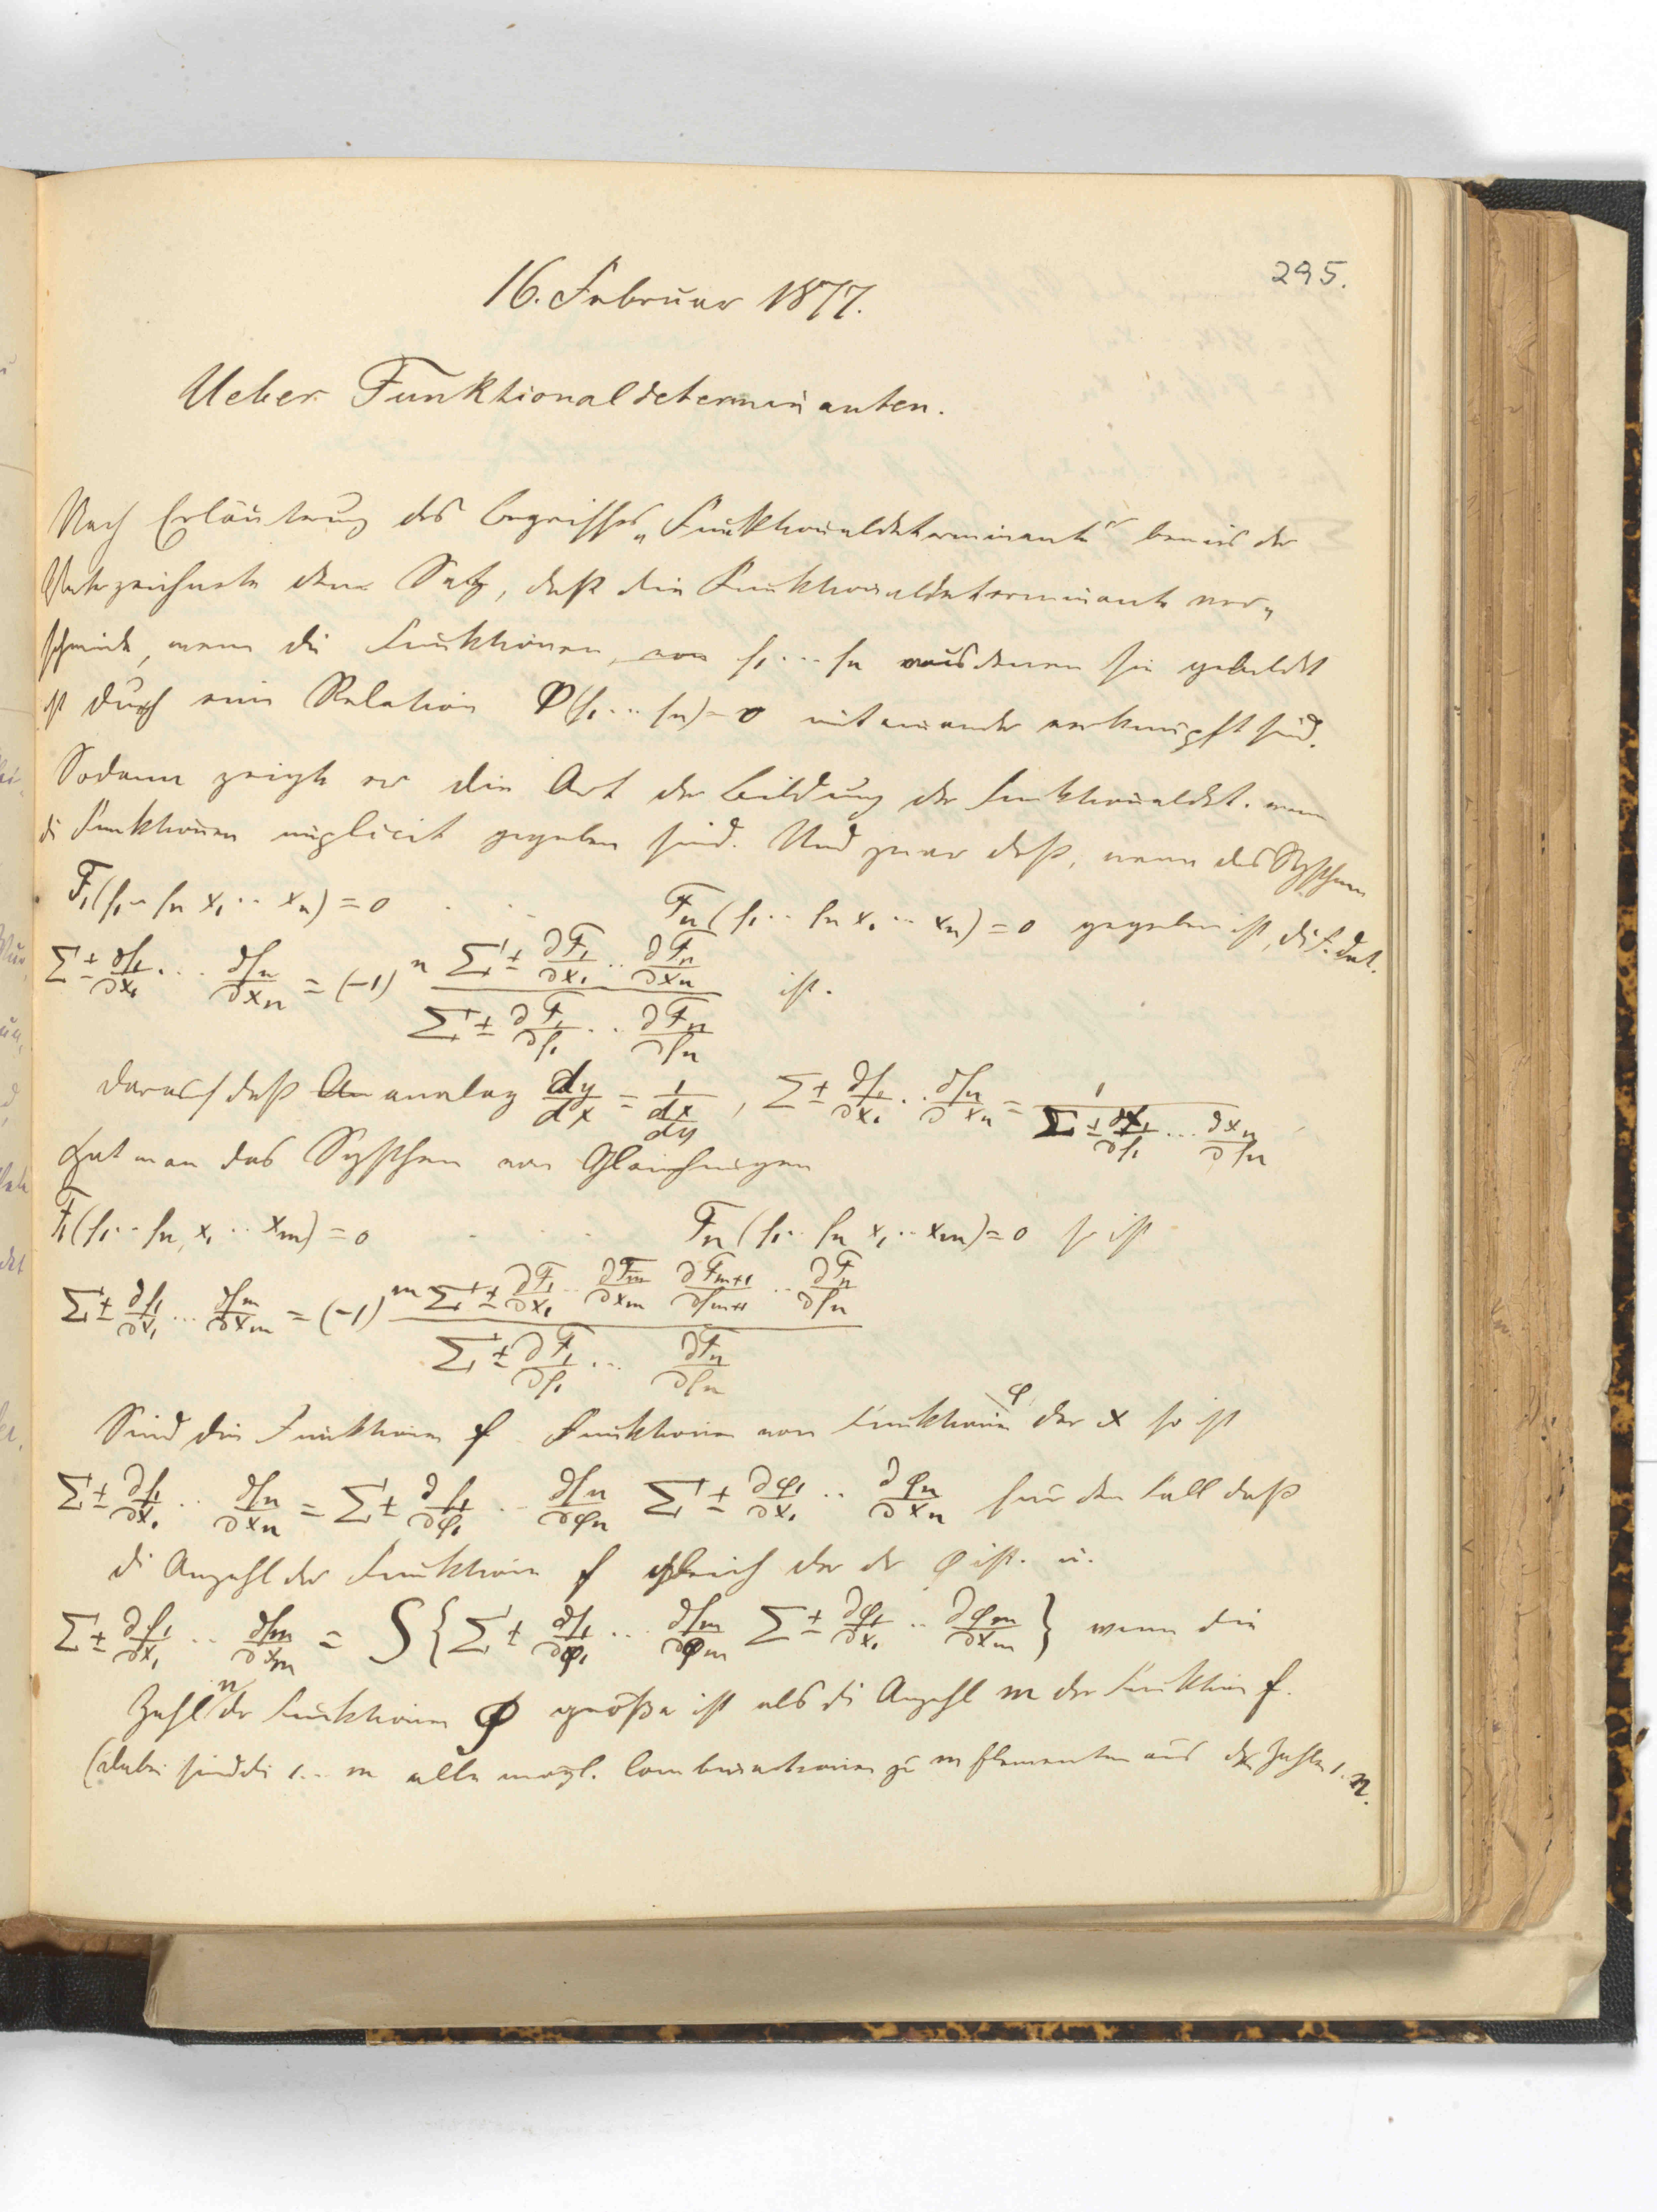 295.
16. Februar 1877.
Ueber Funktionaldeterminanten.
Nach Erläuterung des Begriffes „Funktionaldeterminante“ bewies der
Unterzeichnete den Satz, daß die Funktionaldeterminante ver„
schwindet, wenn die Funktionen, von f₁ ... fₙ aus denen sie gebildet
ist durch eine Relation Φ(f₁ ... fₙ) = 0 mit einander verknüpft sind.
Sodann zeigte er die Art der Bildung der Funktionaldet. wenn
die Funktionen implicit gegeben sind. Und zwar daß, wenn das System
F₁(f₁ .. fₙ x₁ .. xₙ) = 0 . . . Fₙ(f₁ .. fₙ x₁ .. xₙ) = 0 gegeben ist, die F. Det.
Σ ± ∂f₁/∂x₁ ... ∂fₙ/∂xₙ = (-1)ⁿ (Σ ± ∂F₁/∂x₁ .. ∂Fₙ/∂xₙ) / (Σ ± ∂F₁/∂f₁ .. ∂Fₙ/∂fₙ) ist.
darauf daß analog dy/dx = 1/(dx/dy), Σ ± ∂f₁/∂x₁ .. ∂fₙ/∂xₙ = 1/(Σ ± ∂x₁/∂f₁ ... ∂xₙ/∂fₙ)
Hat man das System von Gleichungen
F₁(f₁ .. fₙ, x₁ .. xₘ) = 0 . . . Fₙ(f₁ .. fₙ x₁ .. xₘ) = 0 so ist
Σ ± ∂f₁/∂x₁ ... ∂fₘ/∂xₘ = (-1)ᵐ (Σ ± ∂F₁/∂x₁ .. ∂Fₘ/∂xₘ ∂Fₘ₊₁/∂fₘ₊₁ .. ∂Fₙ/∂fₙ) / (Σ ± ∂F₁/∂f₁ ... ∂Fₙ/∂fₙ)
Sind die Funktionen f Funktionen von Funktionen φ der x so ist
Σ ± ∂f₁/∂x₁ .. ∂fₙ/∂xₙ = Σ ± ∂f₁/∂φ₁ .. ∂fₙ/∂φₙ Σ ± ∂φ₁/∂x₁ .. ∂φₙ/∂xₙ für den Fall daß
die Anzahl der Funktionen f gleich der der φ ist. u.
Σ ± ∂f₁/∂x₁ .. ∂fₘ/∂xₘ = S { Σ ± ∂f₁/∂φ₁ ... ∂fₘ/∂φₘ Σ ± ∂φ₁/∂x₁ .. ∂φₘ/∂xₘ } wenn die
Zahl n der Funktionen φ größer ist als die Anzahl m der Funktion f.
(dabei sind die 1 .. m alle mögl. Combinationen zu m Elementen aus der Zahlen 1 .. n.